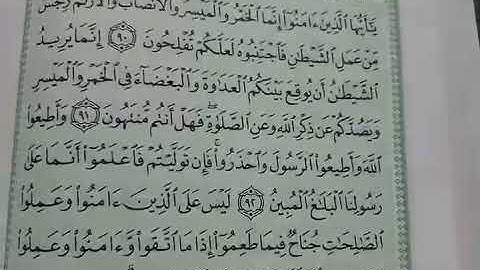 يَٰٓأَيُّهَا ٱلَّذِينَ ءَامَنُوٓا۟ إِنَّمَا ٱلْخَمْرُ وَٱلْمَيْسِرُ وَٱلْأَنصَابُ وَٱلْأَزْلَٰمُ رِجْسٌ
مِّنْ عَمَلِ ٱلشَّيْطَٰنِ فَٱجْتَنِبُوهُ لَعَلَّكُمْ تُفْلِحُونَ ٩٠ إِنَّمَا يُرِيدُ
ٱلشَّيْطَٰنُ أَن يُوقِعَ بَيْنَكُمُ ٱلْعَدَٰوَةَ وَٱلْبَغْضَآءَ فِى ٱلْخَمْرِ وَٱلْمَيْسِرِ
وَيَصُدَّكُمْ عَن ذِكْرِ ٱللَّهِ وَعَنِ ٱلصَّلَوٰةِ ۖ فَهَلْ أَنتُم مُّنتَهُونَ ٩١ وَأَطِيعُوا۟
ٱللَّهَ وَأَطِيعُوا۟ ٱلرَّسُولَ وَٱحْذَرُوا۟ ۚ فَإِن تَوَلَّيْتُمْ فَٱعْلَمُوٓا۟ أَنَّمَا عَلَىٰ
رَسُولِنَا ٱلْبَلَٰغُ ٱلْمُبِينُ ٩٢ لَيْسَ عَلَى ٱلَّذِينَ ءَامَنُوا۟ وَعَمِلُوا۟
ٱلصَّٰلِحَٰتِ جُنَاحٌ فِيمَا طَعِمُوٓا۟ إِذَا مَا ٱتَّقَوا۟ وَّءَامَنُوا۟ وَعَمِلُوا۟